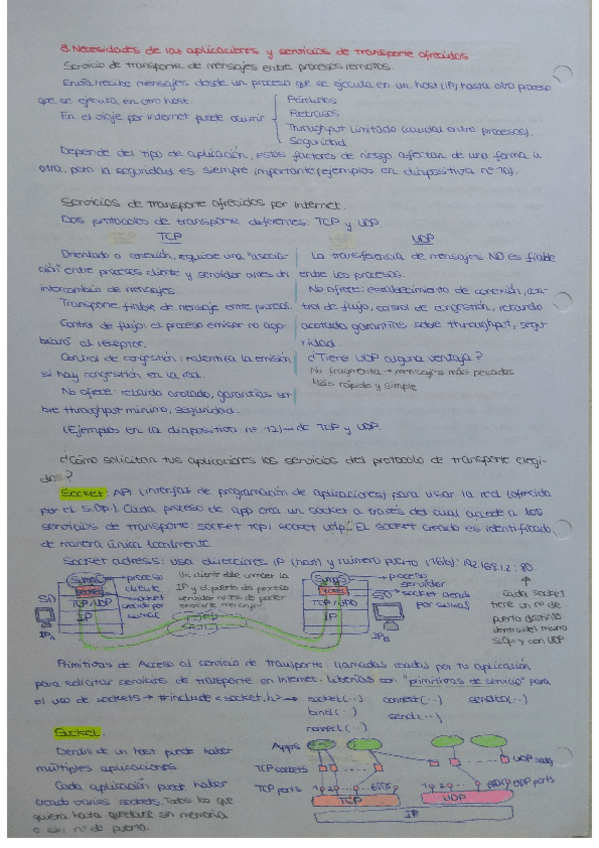 3. Necesidades de las aplicaciones y servicios de transporte ofrecidos
Servicio de transporte de mensajes entre procesos remotos.
Envía/recibe mensajes desde un proceso que se ejecuta en un host (IP) hasta otro proceso
que se ejecuta en otro host.
En el viaje por internet puede ocurrir
Pérdidas
Retrasos
Throughput limitado (caudal entre procesos).
Seguridad
Depende del tipo de aplicación, estos factores de riesgo afectan de una forma u
otra, pero la seguridad es siempre importante (ejemplos en diapositiva nº 10).
Servicios de transporte ofrecidos por Internet.
Dos protocolos de transporte diferentes: TCP y UDP.
TCP
Orientado a conexión, requiere una "asocia-
ción" entre procesos cliente y servidor antes del
intercambio de mensajes.
Transporte fiable de mensaje entre procesos.
Control de flujo: el proceso emisor no ago-
biará al receptor.
Control de congestión: ralentiza la emisión
si hay congestión en la red.
No ofrece: retardo acotado, garantías so-
bre throughput mínimo, seguridad.
UDP
La transferencia de mensajes NO es fiable
entre los procesos.
No ofrece: establecimiento de conexión, con-
trol de flujo, control de congestión, retardo
acotado, garantías sobre throughput, segu-
ridad.
¿Tiene UDP alguna ventaja?
No fragmenta → mensajes más pesados
Más rápido y simple
(Ejemplos en la diapositiva nº 12) → de TCP y UDP.
¿Cómo solicitan tus aplicaciones los servicios del protocolo de transporte elegi-
dos?
Socket: API (interfaz de programación de aplicaciones) para usar la red (ofrecida
por el S.Op.). Cada proceso de app crea un socket a través del cual accede a los
servicios de transporte: socket tcp, socket udp... El socket creado es identificado
de manera única localmente.
Socket adress: usa direcciones IP (host) y número puerto (16b): 192.168.1.2 : 80
proceso
cliente
socket
creado por
SO
socket
TCP/UDP
IP
IPA
Un cliente debe conocer la
IP y el puerto del proceso
servidor antes de poder
enviarle mensajes.
proceso
servidor
SO
socket
TCP/UDP
IP
socket creado
por
IPB
Cada socket
tiene un nº de
puerto distinto
dentro del mismo
S.Op. y con UDP
Primitivas de Acceso al servicio de transporte: llamadas usadas por tu aplicación
para solicitar servicios de transporte en Internet. Librerías con "primitivas de servicio" para
el uso de sockets → #include <socket.h> → socket(...) connect(...) sendto(...)
bind(...) send(...)
Socket.
Dentro de un host puede haber
múltiples aplicaciones.
Cada aplicación puede haber
creado varios sockets. Todos los que
quiera hasta quedarse sin memoria
o sin nº de puerto.
Apps
TCP sockets
UDP sockets
TCP ports
UDP ports
TCP
UDP
IP